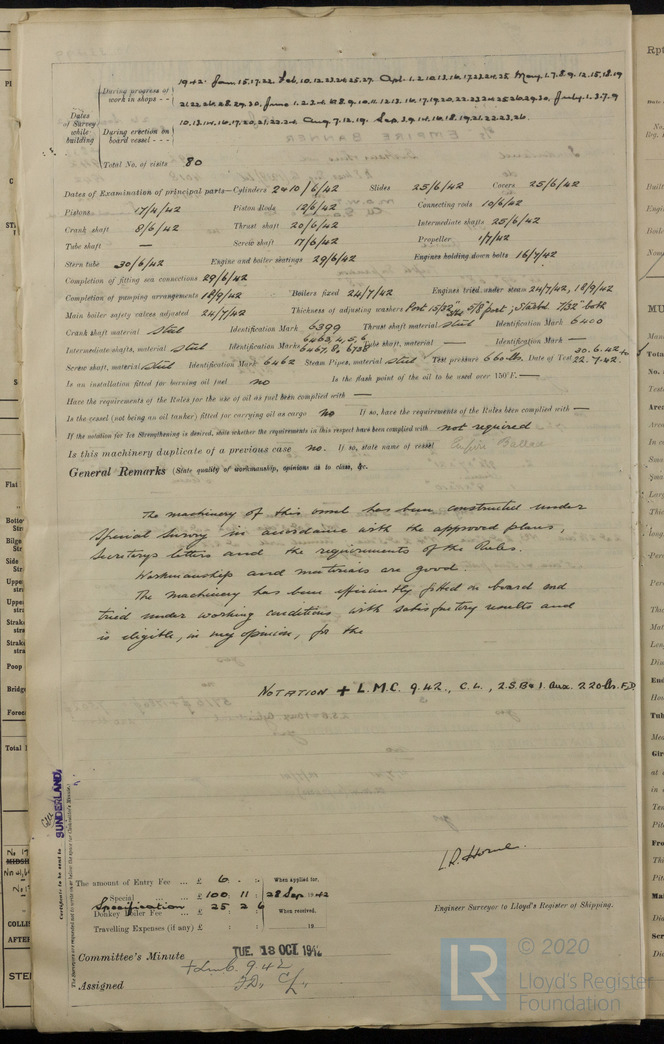 During progress of work in shops - - 1942. Jan. 15.17.22. Feb. 10.12.23.24.25.27. Apl. 1.2.10.13.16.17.23.24.25 May. 1.7.8.9.12.15.18.19
21.22.26.28.29.30. June 1.2.3.4.8.9.10.11.12.13.16.17.19.20.22.23.24.25.26.29.30. July. 1.3.7.9
Dates of Survey while building
During erection on board vessel - - - 10.13.14.16.17.20.21.22.24. Aug. 7.12.19. Sep. 3.9.14.16.18.19.21.22.23.26.
Total No. of visits 80
Dates of Examination of principal parts—Cylinders 2 & 10/6/42 Slides 25/6/42 Covers 25/6/42
Pistons 17/4/42 Piston Rods 12/6/42 Connecting rods 10/6/42
Crank shaft 8/6/42 Thrust shaft 20/6/42 Intermediate shafts 25/6/42
Tube shaft — Screw shaft 17/6/42 Propeller 1/7/42
Stern tube 30/6/42 Engine and boiler seatings 29/6/42 Engines holding down bolts 16/7/42
Completion of fitting sea connections 29/6/42
Completion of pumping arrangements 18/9/42 Boilers fixed 24/7/42 Engines tried under steam 24/7/42, 18/9/42
Main boiler safety valves adjusted 24/7/42 Thickness of adjusting washers Port 15/32" 5/8" port; Starbd 7/32" both
Crank shaft material Steel Identification Mark 6399 Thrust shaft material Steel Identification Mark 6400
Intermediate shafts, material Steel Identification Marks 6463, 4, 5, 6, 6467, 8, 6738 Tube shaft, material — Identification Mark —
Screw shaft, material Steel Identification Mark 6462 Steam Pipes, material Steel Test pressure 660 lbs. Date of Test 30.6.42 to 22.7.42.
Is an installation fitted for burning oil fuel no Is the flash point of the oil to be used over 150°F. —
Have the requirements of the Rules for the use of oil as fuel been complied with —
Is the vessel (not being an oil tanker) fitted for carrying oil as cargo no If so, have the requirements of the Rules been complied with —
If the notation for Ice Strengthening is desired, state whether the requirements in this respect have been complied with not required
Is this machinery duplicate of a previous case no. If so, state name of vessel Empire Ballad
General Remarks (State quality of workmanship, opinions as to class, &c.
The machinery of this vessel has been constructed under
Special Survey in accordance with the approved plans,
Secretarys letters and the requirements of the Rules.
Workmanship and materials are good.
The machinery has been efficiently fitted on board and
tried under working conditions with satisfactory results and
is eligible, in my opinion, for the
NOTATION + L.M.C. 9.42., C.L., 2.S.B & 1. Aux. 220 lbs. F.D.
SUNDERLAND
Certificate to be sent to
L.R. Horne.
Engineer Surveyor to Lloyd's Register of Shipping.
The amount of Entry Fee ... £ 6 : : When applied for,
Special ... £ 100 . 11 : 28 Sep. 1942
Specification
Donkey Boiler Fee ... £ 25 2 6 When received,
Travelling Expenses (if any) £ : : 19
Committee's Minute TUE. 13 OCT 1942
Assigned + Lmc. 9.42
F.D., C.L.,
© 2020
LR
Lloyd's Register
Foundation